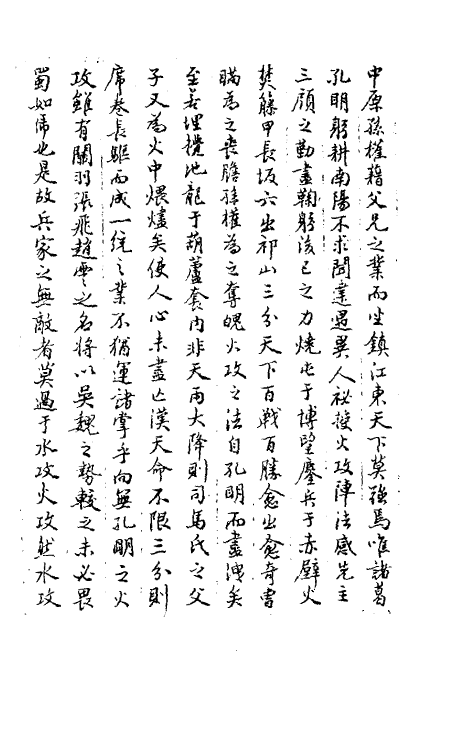 中原孫權藉父兄之業而坐鎮江東天下莫強焉唯諸葛
孔明躬耕南陽不求聞達遇異人祕授火攻陣法感先主
三顧之勤盡鞠躬後已之力燒屯于博望鏖兵于赤壁火
焚籐甲長坂六出祁山三分天下百戰百勝愈出愈奇曹
瞞為之喪膽孫權為之奪魄火攻之法自孔明而盡洩矣
至若埋攪地龍于葫蘆套內非天雨大降則司馬氏之父
子又為火中煨燼矣使人心未盡亡漢天命不限三分則
席卷長驅而成一統之業不猶運諸掌乎向無孔明之火
攻雖有關羽張飛趙雲之名將以吳魏之勢較之未必畏
蜀如虎也是故兵家之無敵者莫過于水攻火攻然水攻